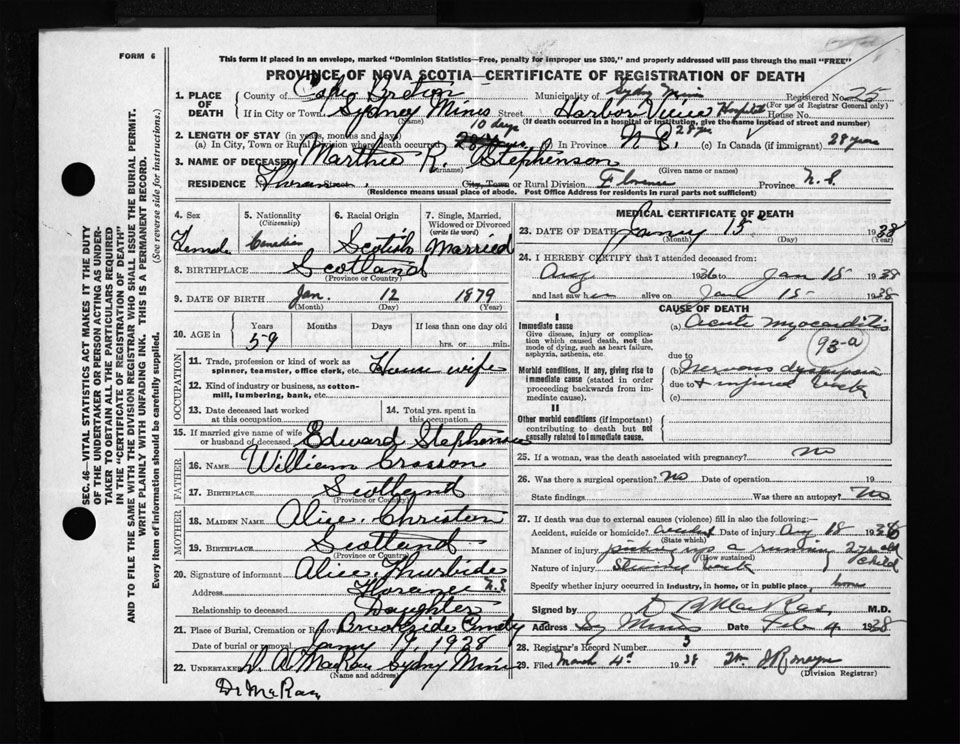 FORM 6
This form if placed in an envelope, marked "Dominion Statistics—Free, penalty for improper use $300," and properly addressed will pass through the mail "FREE"
PROVINCE OF NOVA SCOTIA—CERTIFICATE OF REGISTRATION OF DEATH
1. PLACE OF DEATH County of Cape Breton Municipality of Sydney Mines Registered No. 25
(For use of Registrar General only)
If in City or Town Sydney Mines Street Harbor View Hospital House No.
(Name) (If death occurred in a hospital or institution, give the name instead of street and number)
2. LENGTH OF STAY (in years, months and days)
(a) In City, Town or Rural Division where death occurred 10 days (b) In Province N S. 28 yrs (c) In Canada (if immigrant) 28 years
3. NAME OF DECEASED Marthie R. Stephenson
(Surname) (Given name or names)
RESIDENCE City, Town or Rural Division Florence Province N. S.
(Residence means usual place of abode. Post Office Address for residents in rural parts not sufficient)
4. Sex Female
5. Nationality (Citizenship) Canadian
6. Racial Origin Scotish
7. Single, Married, Widowed or Divorced (write the word) Married
8. BIRTHPLACE Scotland
(Province or Country)
9. DATE OF BIRTH Jan. 12 1879
(Month) (Day) (Year)
10. AGE in Years 59 Months Days If less than one day old
hrs. or min.
OCCUPATION
11. Trade, profession or kind of work as spinner, teamster, office clerk, etc. House wife
12. Kind of industry or business, as cotton-mill, lumbering, bank, etc.
13. Date deceased last worked at this occupation
14. Total yrs. spent in this occupation
15. If married give name of wife or husband of deceased Edward Stephenson
FATHER
16. NAME William Crosson
17. BIRTHPLACE Scotland
(Province or Country)
MOTHER
18. MAIDEN NAME Alice Christen
19. BIRTHPLACE Scotland
(Province or Country)
20. Signature of informant Alice Thurbide
Address Florence N.S
Relationship to deceased Daughter
21. Place of Burial, Cremation or Removal Brookside Cemty
Date of burial or removal Jany 19, 1938
22. UNDERTAKER D. A. MacRae Sydney Mines
(Name and address)
Dr McRae
MEDICAL CERTIFICATE OF DEATH
23. DATE OF DEATH January 15 1938
(Month) (Day) (Year)
24. I HEREBY CERTIFY that I attended deceased from:
Aug 1936 to Jan 15 1938
and last saw her alive on Jan 15 1938
CAUSE OF DEATH
I
Immediate cause
Give disease, injury or complication which caused death, not the mode of dying, such as heart failure, asphyxia, asthenia, etc.
(a) Acute Myocarditis
93-a
due to
Morbid conditions, if any, giving rise to immediate cause (stated in order proceeding backwards from immediate cause).
(b) nervous
due to + injured back
(c)
II
Other morbid conditions (if important) contributing to death but not causally related to immediate cause.
25. If a woman, was the death associated with pregnancy? no
26. Was there a surgical operation? No Date of operation 19
State findings Was there an autopsy? No
27. If death was due to external causes (violence) fill in also the following:—
Accident, suicide or homicide? accident Date of injury Aug 18 1936
(State which)
Manner of injury picking up a 2 yr old child
(How sustained)
Nature of injury back
Specify whether injury occurred in industry, in home, or in public place home
Signed by D A MacRae M.D.
Address Sy Mines Date Feb 4 1938
28. Registrar's Record Number 3
29. Filed March 4 1938
(Division Registrar)
SEC. 46—VITAL STATISTICS ACT MAKES IT THE DUTY
OF THE UNDERTAKER OR PERSON ACTING AS UNDER-
TAKER TO OBTAIN ALL THE PARTICULARS REQUIRED
IN THE "CERTIFICATE OF REGISTRATION OF DEATH"
AND TO FILE THE SAME WITH THE DIVISION REGISTRAR WHO SHALL ISSUE THE BURIAL PERMIT.
WRITE PLAINLY WITH UNFADING INK. THIS IS A PERMANENT RECORD.
Every item of information should be carefully supplied. (See reverse side for instructions.)